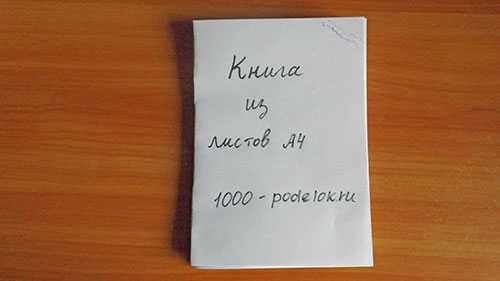 Книга
из
листов А4
1000-podelok.ru